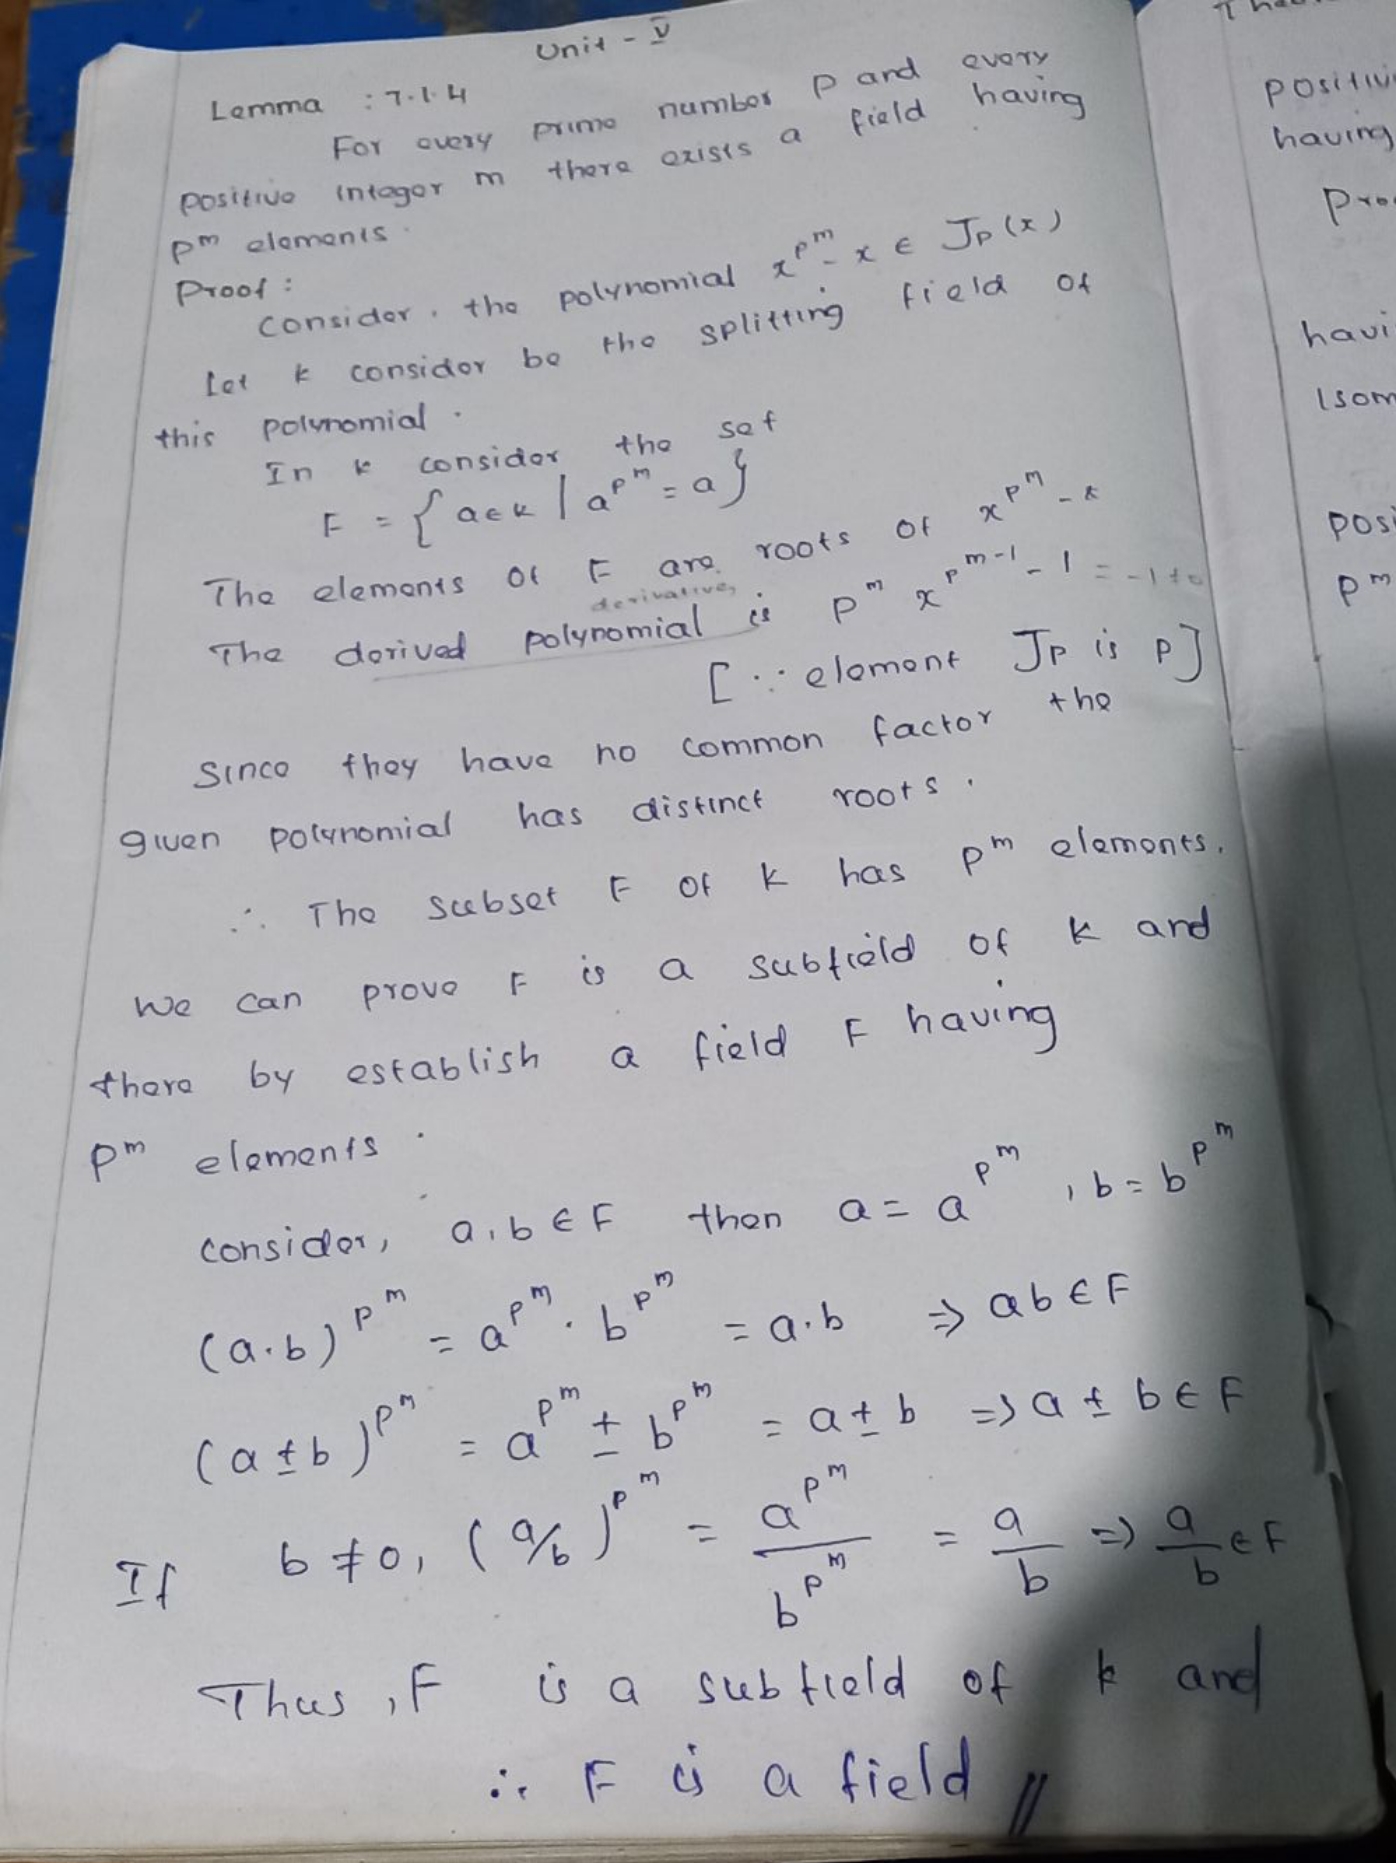 Unit - V
Lemma : 7.1.4
For every prime number p and every
positive integer m there exists a field having
p^m elements.
Proof :
Consider, the polynomial x^{p^m} - x ∈ J_p(x)
Let k consider be the splitting field of
this polynomial.
In k consider the set
F = { a∈k | a^{p^m} = a }
The elements of F are roots of x^{p^m} - x
derivative
The derived polynomial is p^m x^{p^{m-1}} - 1 = -1 ≠ 0
[∵ element J_p is p]
Since they have no common factor the
given polynomial has distinct roots.
∴ The subset F of k has p^m elements.
We can prove F is a subfield of k and
there by establish a field F having
p^m elements.
Consider, a, b ∈ F then a = a^{p^m}, b = b^{p^m}
(a·b)^{p^m} = a^{p^m} · b^{p^m} = a·b ⇒ ab ∈ F
(a ± b)^{p^m} = a^{p^m} ± b^{p^m} = a ± b ⇒ a ± b ∈ F
If b ≠ 0, (a/b)^{p^m} = a^{p^m} / b^{p^m} = a/b ⇒ a/b ∈ F
Thus, F is a subfield of k and
∴ F is a field //
having
p^m